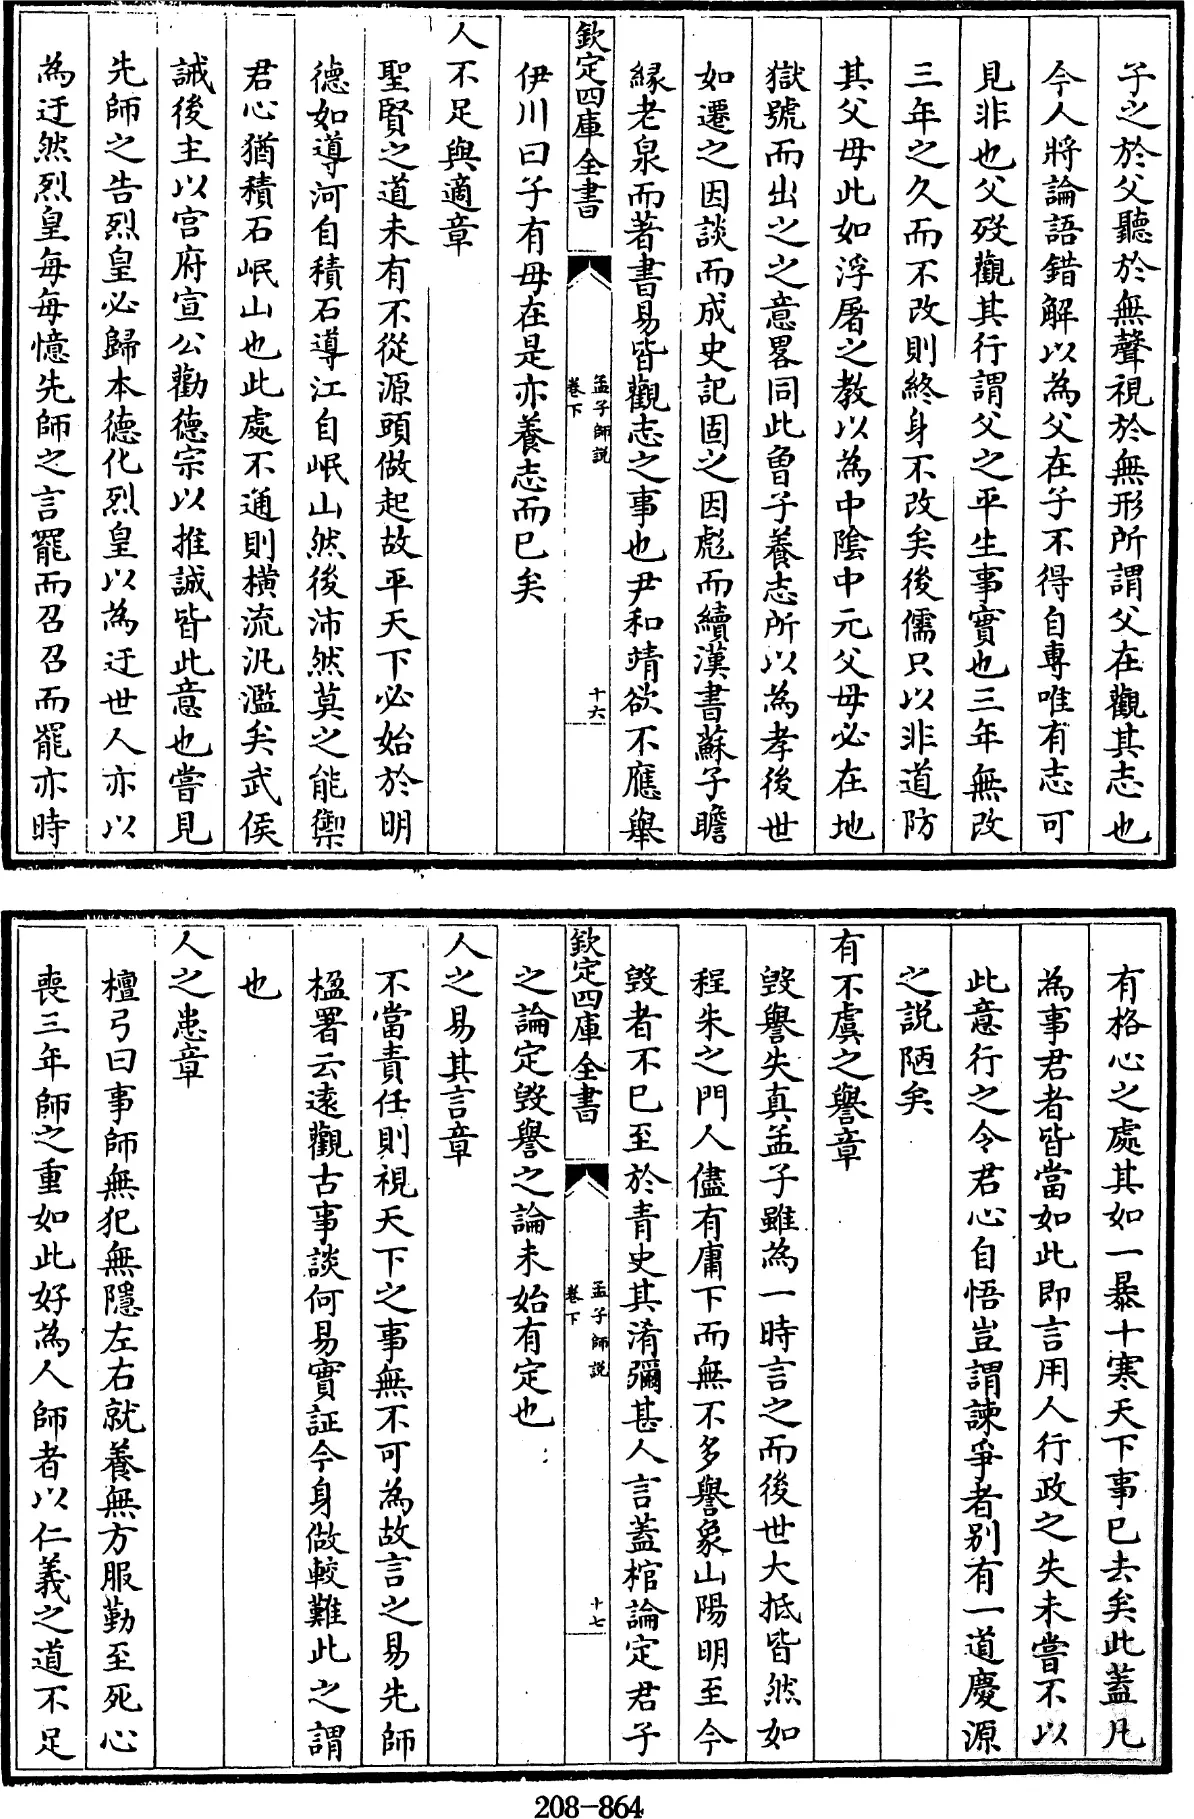 子之於父聽於無聲視於無形所謂父在觀其志也
今人將論語錯解以為父在子不得自専唯有志可
見非也父歿觀其行謂父之平生事實也三年無改
三年之久而不改則終身不改矣後儒只以非道防
其父母此如浮屠之教以為中陰中元父母必在地
獄號而出之之意畧同此曾子養志所以為孝後世
如遷之因談而成史記固之因彪而續漢書蘇子瞻
縁老泉而著書易皆觀志之事也尹和靖欲不應舉
欽定四庫全書
孟子師説
卷下
十六
伊川曰子有母在是亦養志而已矣
人不足與適章
聖賢之道未有不從源頭做起故平天下必始於明
德如導河自積石導江自岷山然後沛然莫之能禦
君心猶積石岷山也此處不通則橫流汎濫矣武侯
誡後主以宮府宣公勸德宗以推誠皆此意也嘗見
先師之告烈皇必歸本德化烈皇以為迂世人亦以
為迂然烈皇每每憶先師之言罷而召召而罷亦時
有格心之處其如一暴十寒天下事已去矣此蓋凡
為事君者皆當如此即言用人行政之失未嘗不以
此意行之令君心自悟豈謂諫爭者别有一道慶源
之説陋矣
有不虞之譽章
毀譽失真孟子雖為一時言之而後世大抵皆然如
程朱之門人儘有庸下而無不多譽象山陽明至今
毀者不已至於青史其淆彌甚人言蓋棺論定君子
欽定四庫全書
孟子師説
卷下
十七
之論定毀譽之論未始有定也
人之易其言章
不當責任則視天下之事無不可為故言之易先師
楹署云遠觀古事談何易實証今身做較難此之謂
也
人之患章
檀弓曰事師無犯無隱左右就養無方服勤至死心
喪三年師之重如此好為人師者以仁義之道不足
208-864